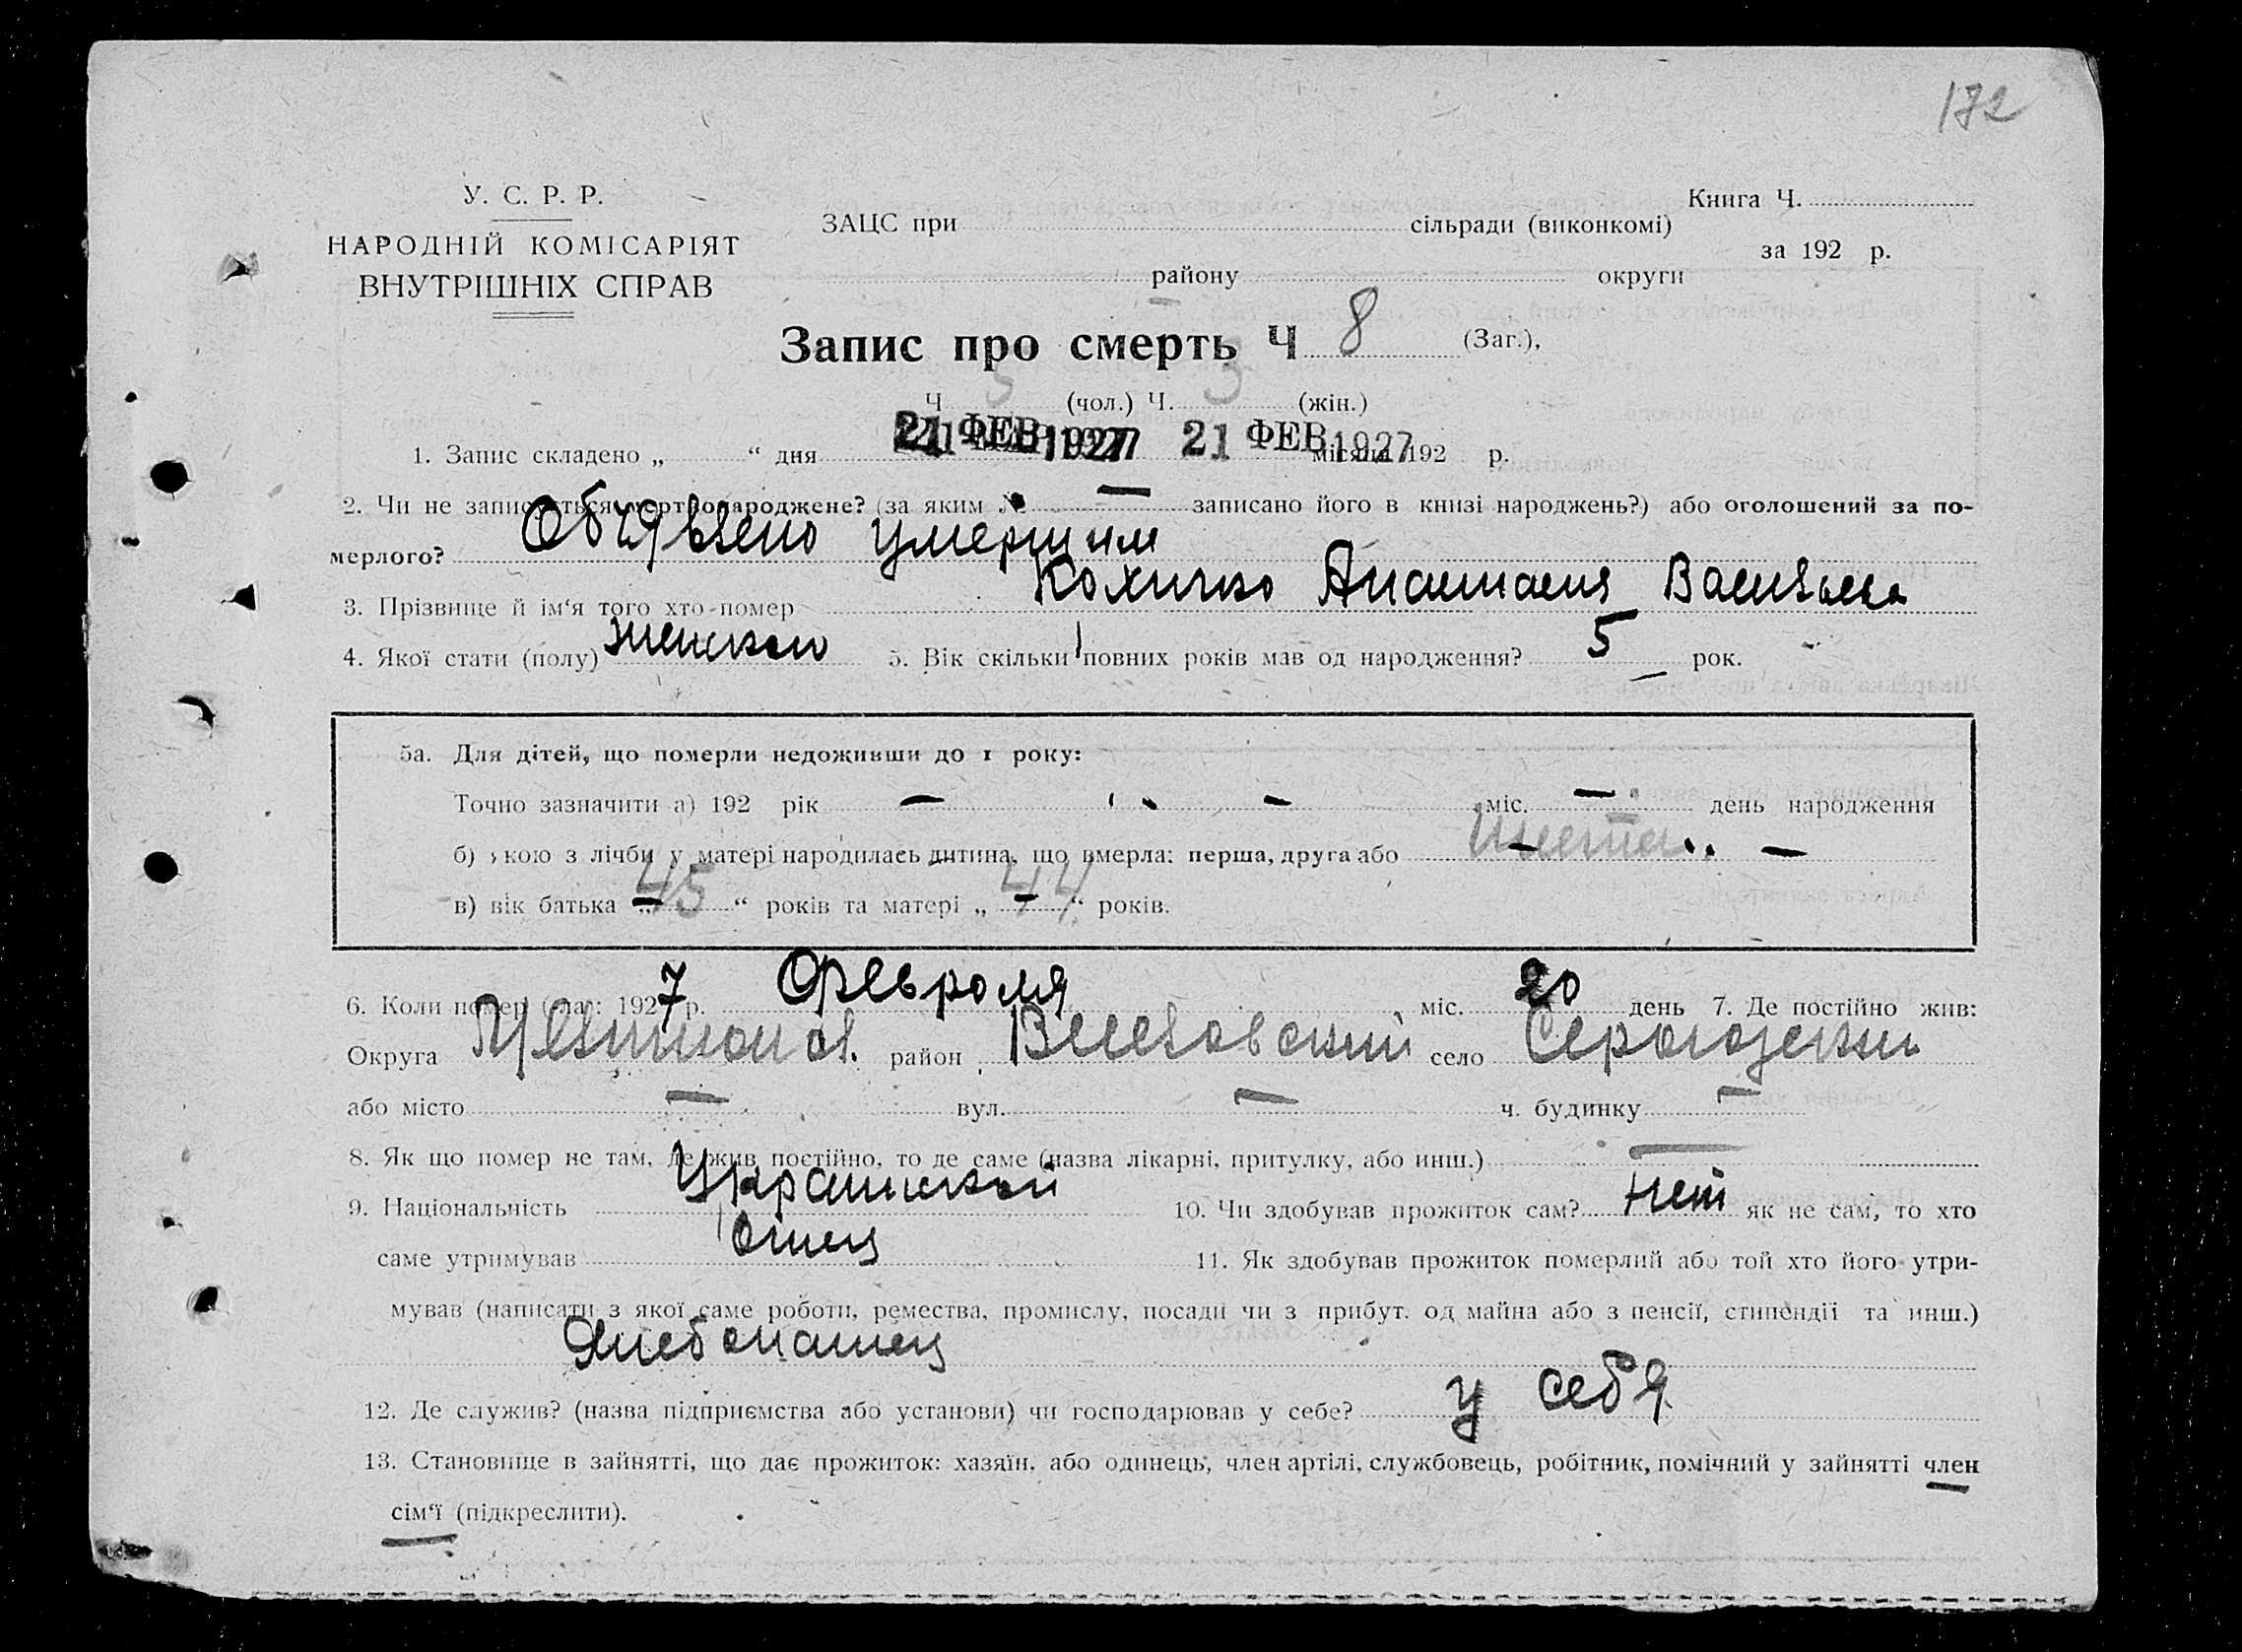 172
У. С. Р. Р.
НАРОДНІЙ КОМІСАРІЯТ
ВНУТРІШНІХ СПРАВ
Книга Ч.
ЗАЦС при сільради (виконкомі)
за 192 р.
району округи
Запис про смерть Ч 8 (Заг.),
Ч 5 (чол.) Ч. 3 (жін.)
1. Запис складено „ “ дня 21 ФЕВ 1927 21 ФЕВ. 1927 місяця 192 р.
2. Чи не записується мертвонароджене? (за яким № — записано його в книзі народжень?) або оголошений за по-
мерлого? Объявлено умершим
3. Прізвище й ім‘я того хто помер Анастасия Васильева
4. Якої стати (полу) женского 5. Вік скільки повних років мав од народження? 5 рок.
5а. Для дітей, що померли недоживши до 1 року:
Точно зазначити а) 192 рік — — міс. — день народження
б) якою з лічби у матері народилась дитина, що вмерла: перша, друга або шеста —
в) вік батька „ 45 “ років та матері „ 44 “ років.
6. Коли помер (ла): 1927 р. Февроля міс. 20 день 7. Де постійно жив:
Округа район село
або місто — вул. — ч. будинку —
8. Як що помер не там, де жив постійно, то де саме (назва лікарні, притулку, або инш.) —
9. Національність Украинской 10. Чи здобував прожиток сам? Нет як не сам, то хто
саме утримував Отец 11. Як здобував прожиток померлий або той хто його утри-
мував (написати з якої саме роботи, ремества, промислу, посади чи з прибут. од майна або з пенсії, стипендії та инш.)
Хлебопашец
12. Де служив? (назва підприємства або установи) чи господарював у себе? у себя
13. Становище в зайнятті, що дає прожиток: хазяїн, або одинець, член артілі, службовець, робітник, помічний у зайнятті член
сім‘ї (підкреслити).